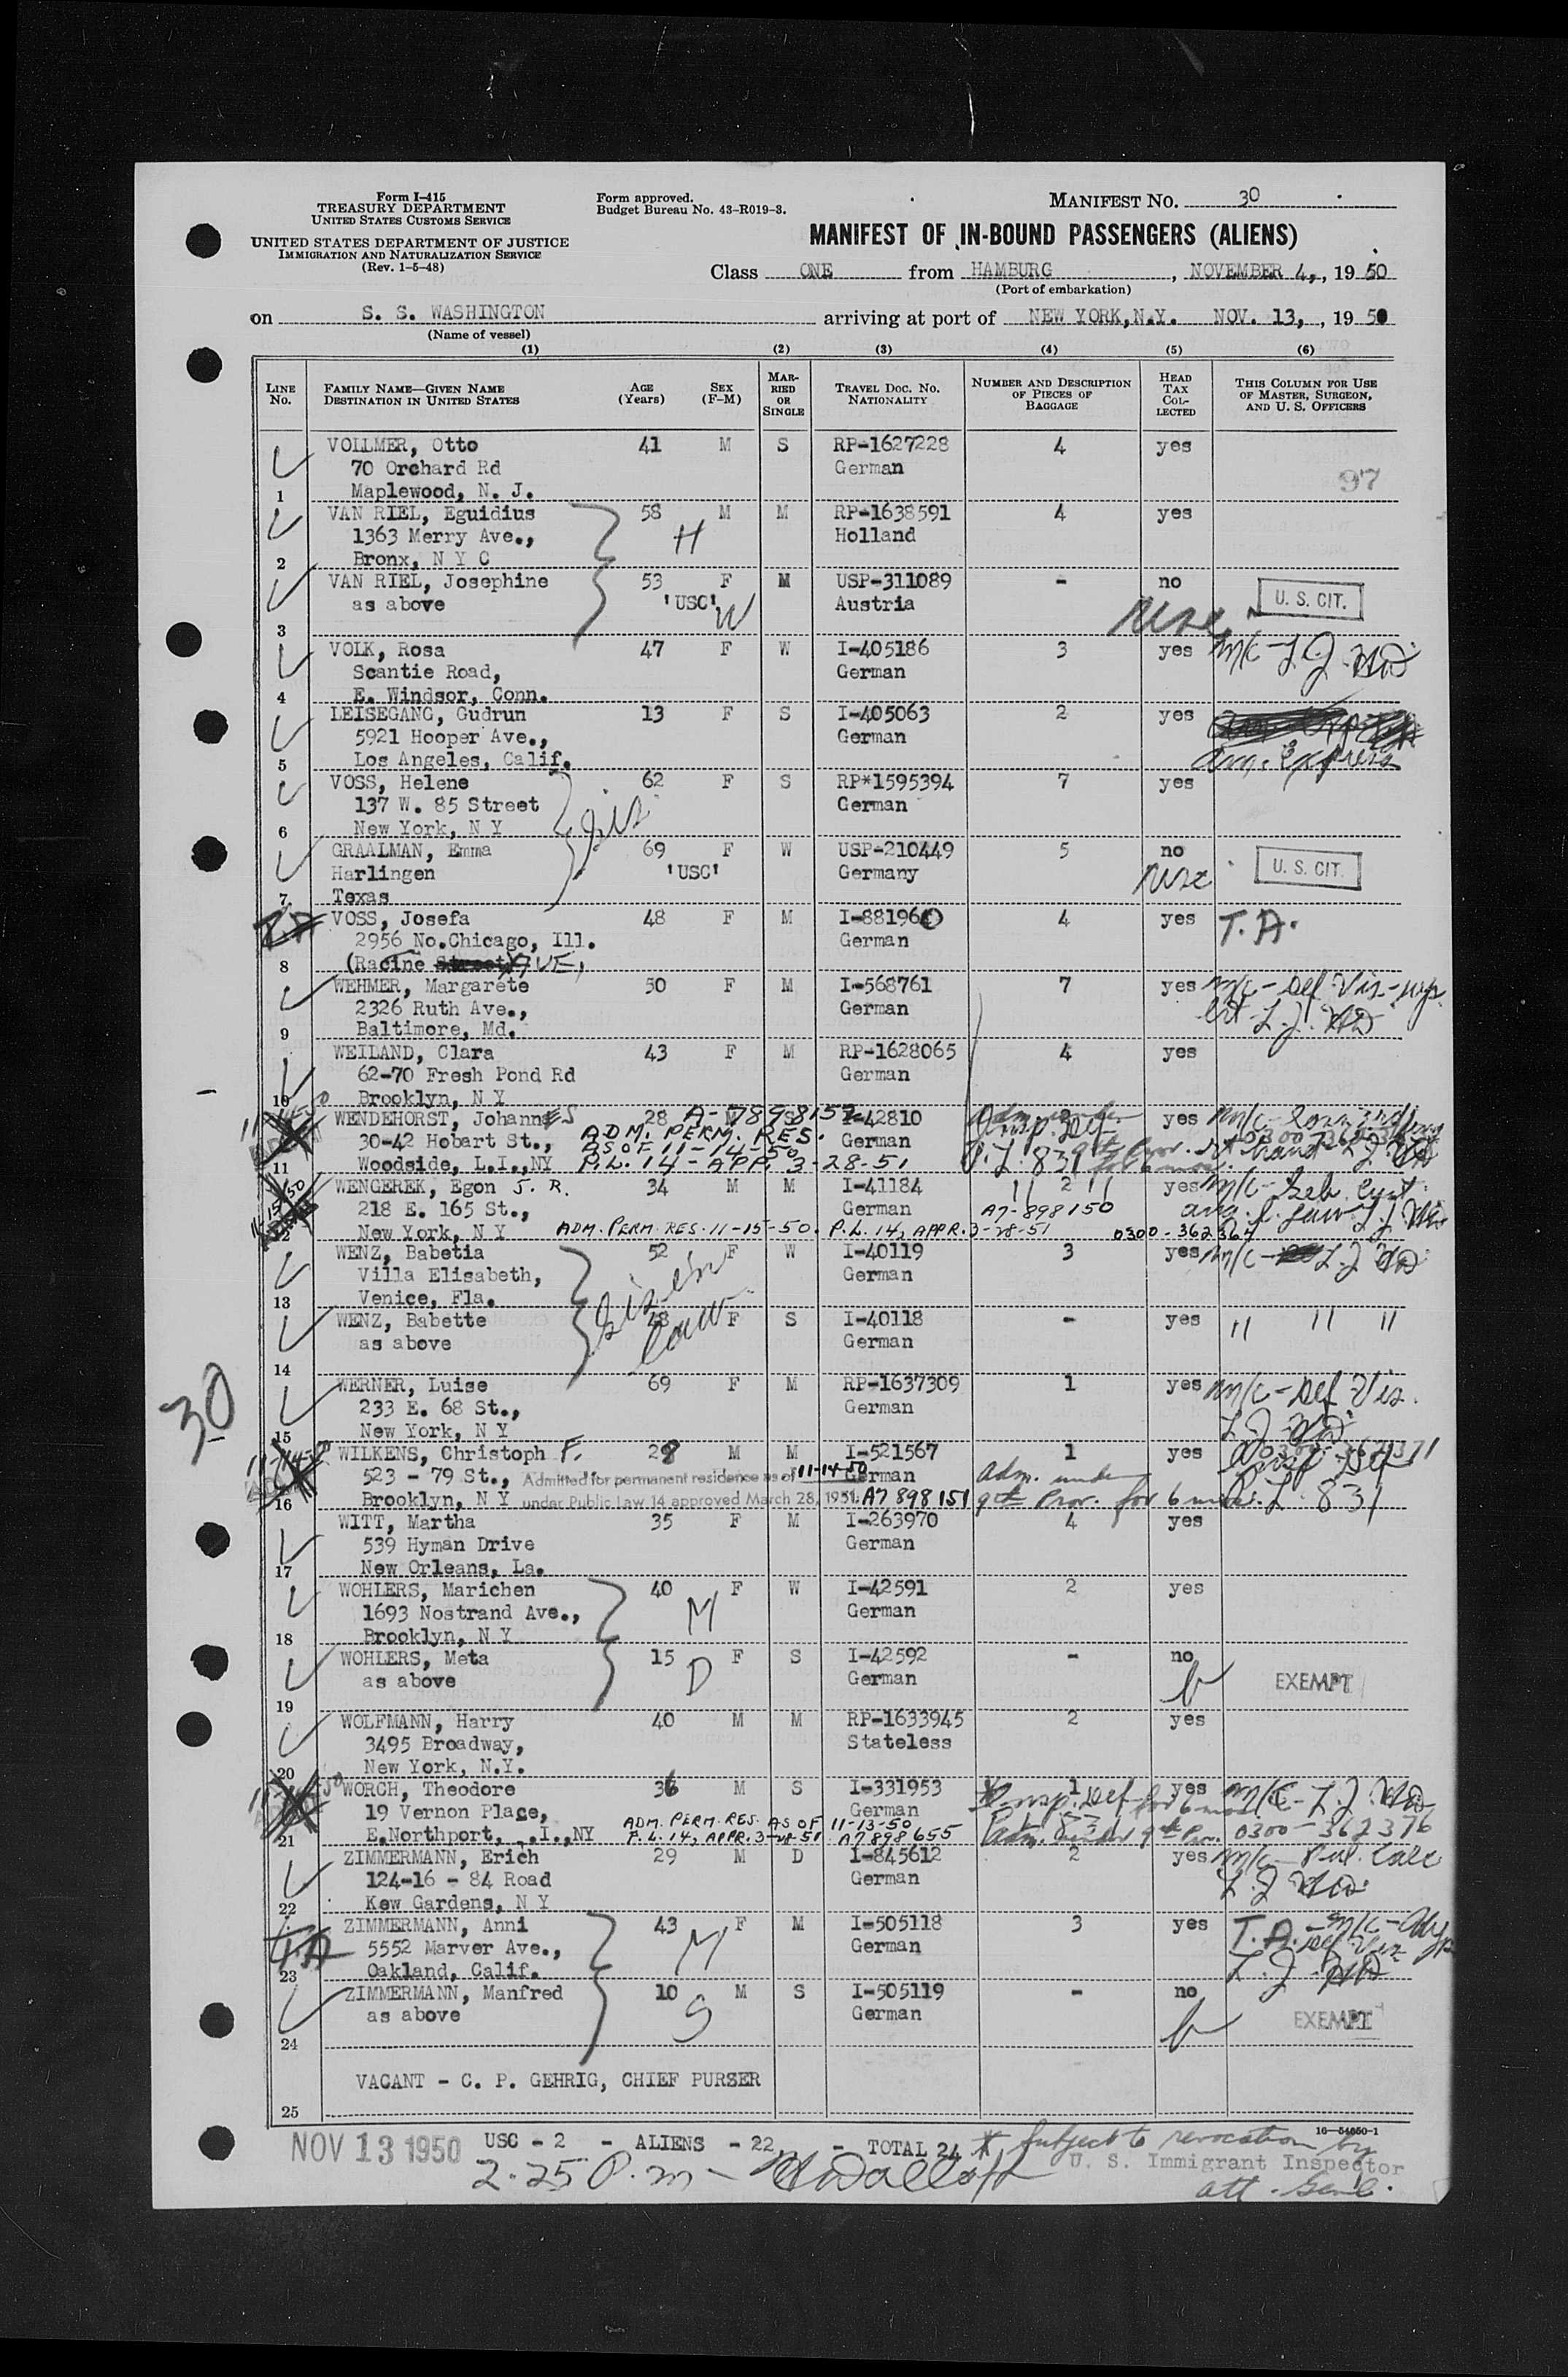 Form I-415
TREASURY DEPARTMENT
UNITED STATES CUSTOMS SERVICE
UNITED STATES DEPARTMENT OF JUSTICE
IMMIGRATION AND NATURALIZATION SERVICE
(Rev. 1-5-48)
Form approved.
Budget Bureau No. 43-R019-3.
MANIFEST NO. 30
MANIFEST OF IN-BOUND PASSENGERS (ALIENS)
Class ONE from HAMBURG, NOVEMBER 4,, 19 50
(Port of embarkation)
on S. S. WASHINGTON arriving at port of NEW YORK, N.Y. NOV. 13, , 19 50
(Name of vessel)
(1) (2) (3) (4) (5) (6)
LINE NO. FAMILY NAME—GIVEN NAME DESTINATION IN UNITED STATES AGE (Years) SEX (F-M) MARRIED OR SINGLE TRAVEL DOC. NO. NATIONALITY NUMBER AND DESCRIPTION OF PIECES OF BAGGAGE HEAD TAX COLLECTED THIS COLUMN FOR USE OF MASTER, SURGEON, AND U. S. OFFICERS
VOLLMER, Otto 41 M S RP-1627228 4 yes
70 Orchard Rd German 97
1 Maplewood, N. J.
VAN RIEL, Eguidius 58 M M RP-1638591 4 yes
1363 Merry Ave., H Holland
2 Bronx, N Y C
VAN RIEL, Josephine 53 F M USP-311089 - no
as above 'USC' W Austria U. S. CIT.
3
VOLK, Rosa 47 F W I-405186 3 yes
Scantie Road, German
4 E. Windsor, Conn.
LEISEGANG, Gudrun 13 F S I-405063 2 yes
5921 Hooper Ave., German
5 Los Angeles, Calif. Am. Express
VOSS, Helene 62 F S RP*1595394 7 yes
137 W. 85 Street sis German
6 New York, N Y
GRAALMAN, Emma 69 F W USP-210449 5 no
Harlingen 'USC' Germany U. S. CIT.
7 Texas
TA VOSS, Josefa 48 F M I-881960 4 yes T.A.
2956 No.Chicago, Ill. German
8 (Racine AVE,
WEHMER, Margarete 50 F M I-568761 7 yes m/c - Def. Vis
2326 Ruth Ave., German
9 Baltimore, Md.
WEILAND, Clara 43 F M RP-1628065 4 yes
62-70 Fresh Pond Rd German
10 Brooklyn, N Y
WENDEHORST, JohannES 28 A-7898152 I-42810 yes
30-42 Hobart St., ADM. PERM. RES. German
AS OF 11-14-50
11 Woodside, L.I.,NY P.L. 14 - APP. 3-28-51 P.L. 831
WENGEREK, Egon J. R. 34 M M I-41184 2 yes
218 E. 165 St., German A7-898150
12 New York, N Y ADM. PERM. RES. 11-15-50. P.L. 14, APPR. 3-28-51 0300-362364
WENZ, Babetia 52 F W I-40119 3 yes
Villa Elisabeth, German
13 Venice, Fla.
WENZ, Babette 28 F S I-40118 - yes " " "
as above German
14
30
WERNER, Luise 69 F M RP-1637309 1 yes m/c - Def Vis.
233 E. 68 St., German
15 New York, N Y
WILKENS, Christoph F. 28 M M I-521567 1 yes
523 - 79 St., Admitted for permanent residence as of 11-14-50 German Adm. under
16 Brooklyn, N Y under Public Law 14 approved March 28, 1951. A7 898 151 9th Prov. for 6 mos. P.L. 831
WITT, Martha 35 F M I-263970 4 yes
539 Hyman Drive German
17 New Orleans, La.
WOHLERS, Marichen 40 F W I-42591 2 yes
1693 Nostrand Ave., M German
18 Brooklyn, N Y
WOHLERS, Meta 15 F S I-42592 - no
as above D German EXEMPT
19
WOLFMANN, Harry 40 M M RP-1633945 2 yes
3495 Broadway, Stateless
20 New York, N.Y.
WORCH, Theodore 36 M S I-331953 1 yes
19 Vernon Place, German
ADM. PERM. RES. AS OF 11-13-50
21 E.Northport, I.,NY P.L. 14, APPR. 3-28-51 A7 898 655 Adm. under 9th Prov. 0300-362376
ZIMMERMANN, Erich 29 M D I-845612 2 yes
124-16 - 84 Road German
22 Kew Gardens, N Y
TA ZIMMERMANN, Anni 43 F M I-505118 3 yes T.A.
5552 Marver Ave., M German
23 Oakland, Calif.
ZIMMERMANN, Manfred 10 M S I-505119 - no
as above S German EXEMPT
24
VACANT - C. P. GEHRIG, CHIEF PURSER
25
16-54650-1
NOV 13 1950 USC - 2 - ALIENS - 22 - TOTAL 24 * Subject to revocation by
2.25 P.m - U. S. Immigrant Inspector
Att. Genl.